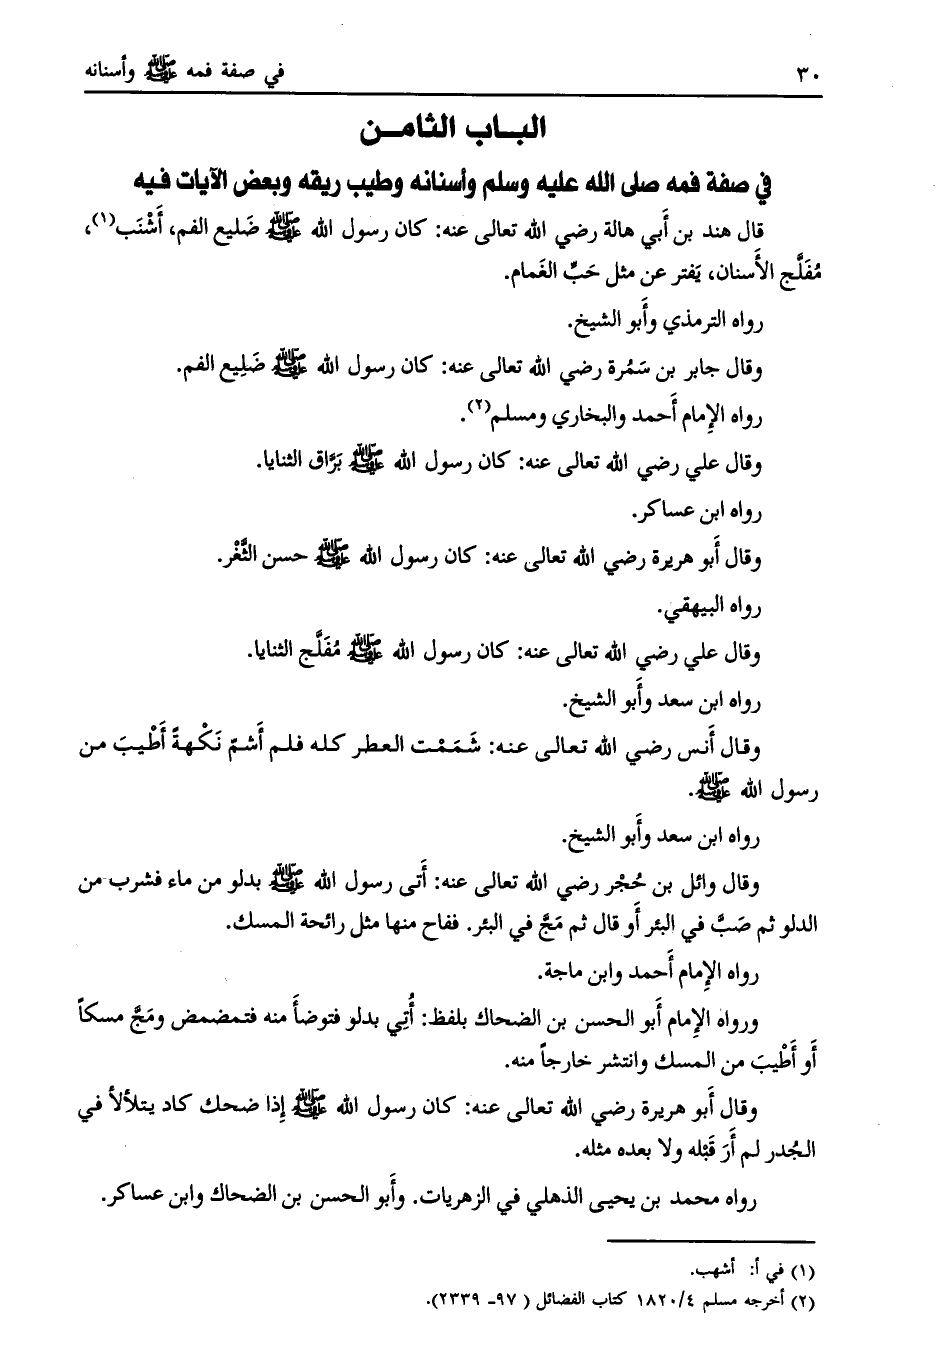 ٣٠ في صفة فمه ﷺ وأسنانه
البـــاب الثامـــن
في صفة فمه صلى الله عليه وسلم وأسنانه وطيب ريقه وبعض الآيات فيه
قال هند بن أَبي هالة رضي الله تعالى عنه: كان رسول الله ﷺ ضَليع الفم، أَشْنَب(١)،
مُفَلَّج الأَسنان، يَفتر عن مثل حَبِّ الغَمام.
رواه الترمذي وأَبو الشيخ.
وقال جابر بن سَمُرة رضي الله تعالى عنه: كان رسول الله ﷺ ضَلِيع الفم.
رواه الإِمام أَحمد والبخاري ومسلم(٢).
وقال علي رضي الله تعالى عنه: كان رسول الله ﷺ بَرَّاق الثنايا.
رواه ابن عساكر.
وقال أَبو هريرة رضي الله تعالى عنه: كان رسول الله ﷺ حسن الثَّغْر.
رواه البيهقي.
وقال علي رضي الله تعالى عنه: كان رسول الله ﷺ مُفَلَّج الثنايا.
رواه ابن سعد وأَبو الشيخ.
وقال أَنس رضي الله تعالى عنه: شَمَمْت العطر كله فلم أَشمّ نَكْهةً أَطْيبَ من
رسول الله ﷺ.
رواه ابن سعد وأَبو الشيخ.
وقال وائل بن حُجْر رضي الله تعالى عنه: أَتى رسول الله ﷺ بدلو من ماء فشرب من
الدلو ثم صَبَّ في البئر أَو قال ثم مَجَّ في البئر. ففاح منها مثل رائحة المسك.
رواه الإِمام أَحمد وابن ماجة.
ورواه الإِمام أَبو الحسن بن الضحاك بلفظ: أُتِي بدلو فتوضأَ منه فتمضمض ومَجَّ مسكاً
أَو أَطْيبَ من المسك وانتشر خارجاً منه.
وقال أَبو هريرة رضي الله تعالى عنه: كان رسول الله ﷺ إِذا ضحك كاد يتلألأ في
الجُدر لم أَرَ قَبْله ولا بعده مثله.
رواه محمد بن يحيى الذهلي في الزهريات. وأَبو الحسن بن الضحاك وابن عساكر.
(١) في أ: أشهب.
(٢) أخرجه مسلم ١٨٢٠/٤ كتاب الفضائل (٩٧- ٢٣٣٩).